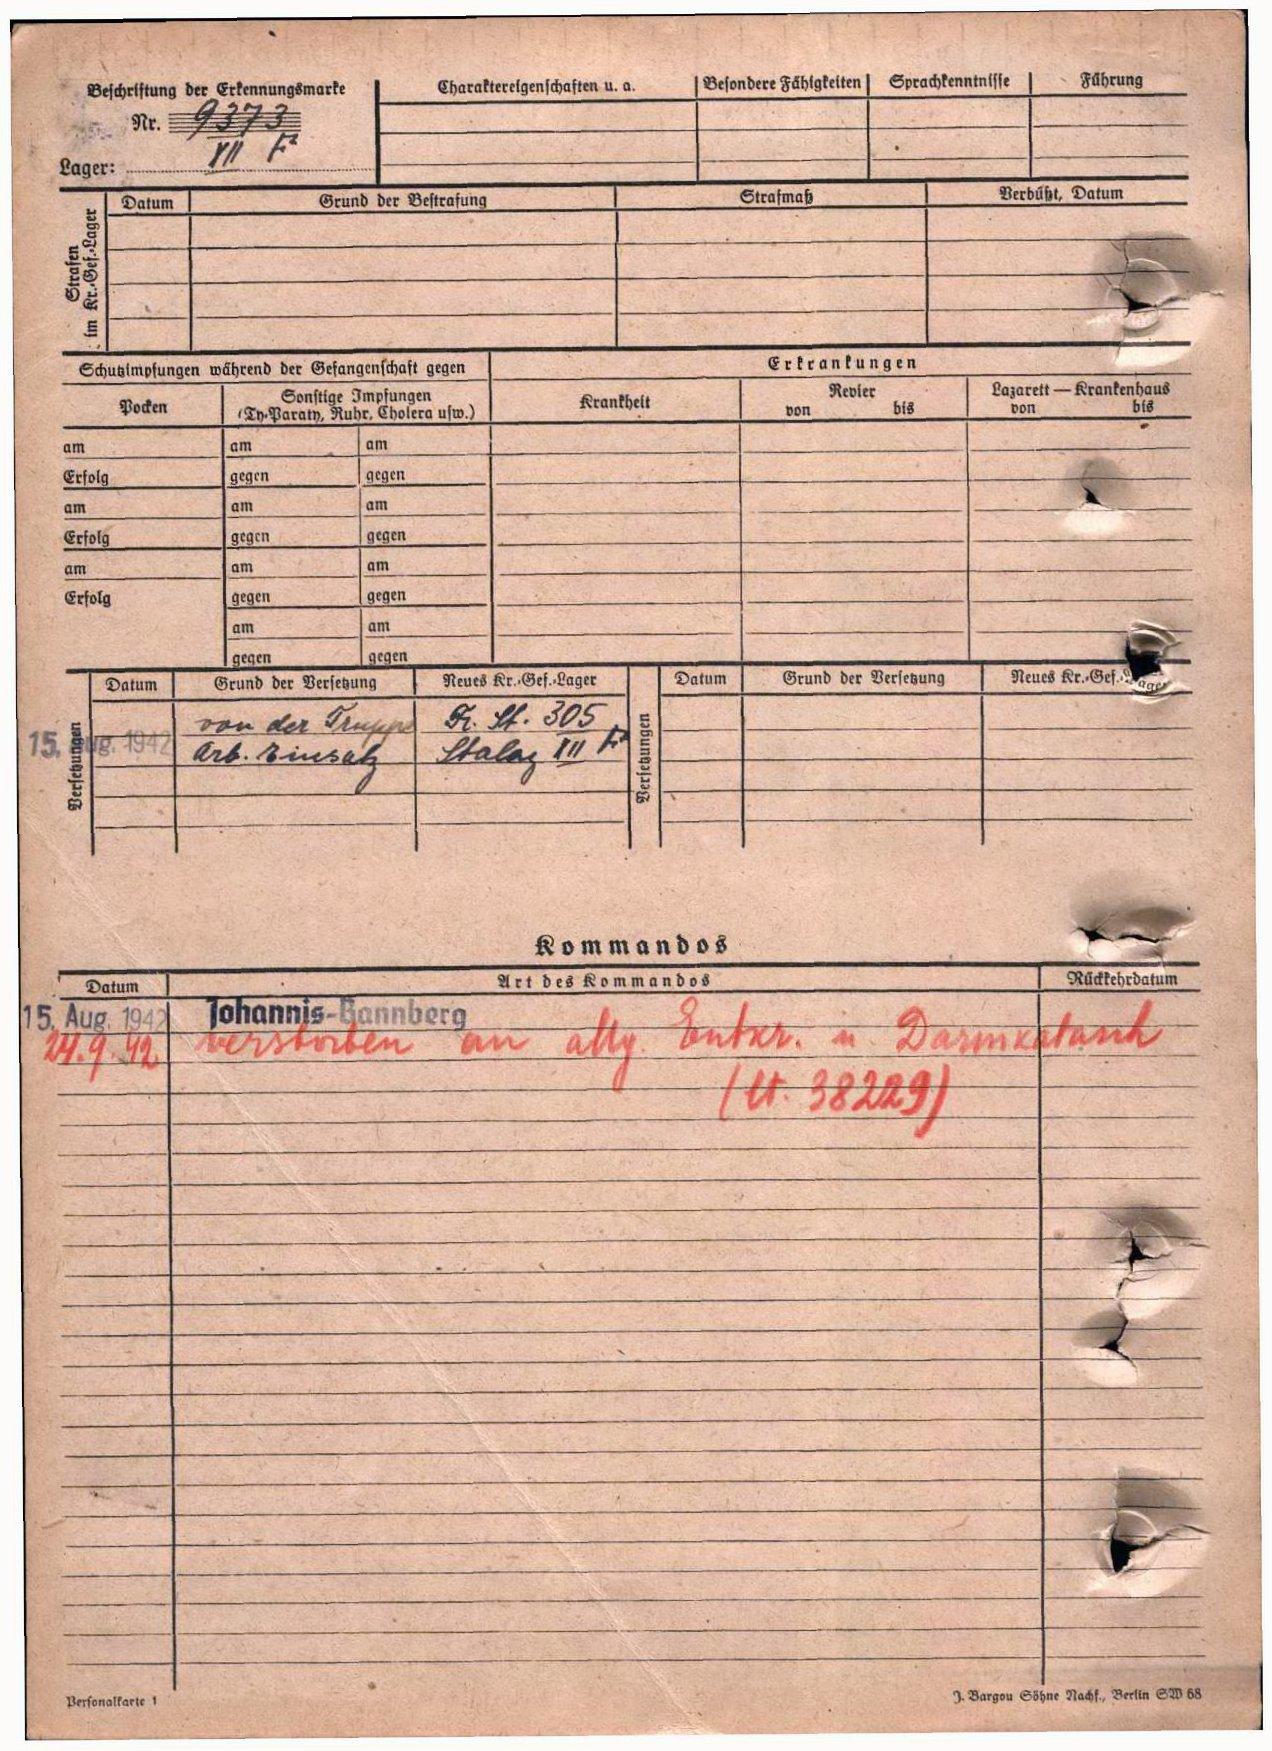 Beschriftung der Erkennungsmarke
Nr. 9373
Lager: XII F²
Charaktereigenschaften u. a. Besondere Fähigkeiten Sprachkenntnisse Führung
Strafen im Kr.-Gef.-Lager
Datum Grund der Bestrafung Strafmaß Verbüßt, Datum
Schutzimpfungen während der Gefangenschaft gegen
Erkrankungen
Pocken
Sonstige Impfungen
(Ty-Paraty, Ruhr, Cholera usw.)
Krankheit
Revier
von bis
Lazarett — Krankenhaus
von bis
am am am
Erfolg gegen gegen
am am am
Erfolg gegen gegen
am am am
Erfolg gegen gegen
am am
gegen gegen
Versetzungen
Datum Grund der Versetzung Neues Kr.-Gef.-Lager
von der Truppe Fr. St. 305
15. Aug. 1942 Arb. Einsatz Stalag XII F²
Versetzungen
Datum Grund der Versetzung Neues Kr.-Gef.-Lager
Kommandos
Datum Art des Kommandos Rückkehrdatum
15. Aug. 1942 Johannis-Bannberg
24.9.42 verstorben an allg. Entkr. u Darmkatarrh
(lt. 38229)
Personalkarte 1
J. Bargou Söhne Nachf., Berlin SW 68